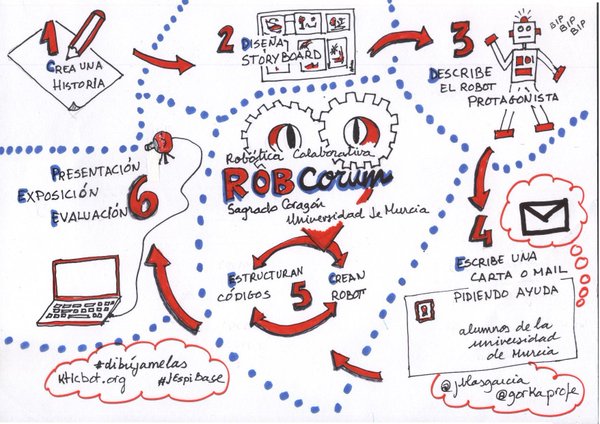 1
CREA UNA
HISTORIA
2 DISEÑA
STORYBOARD
3
DESCRIBE
EL ROBOT
PROTAGONISTA
BIP
BIP
BIP
Robótica Colaborativa
ROBCorum
Sagrado Corazón
Universidad de Murcia
4
ESCRIBE UNA
CARTA O MAIL
PIDIENDO AYUDA
alumnos de la
universidad
de Murcia
@jvlasgarcia
@gorkaprofe
ESTRUCTURAN
CÓDIGOS
5
CREAN
ROBOT
6
PRESENTACIÓN
EXPOSICIÓN
EVALUACIÓN
#dibújamelas
kticbot.org #JEspiBase